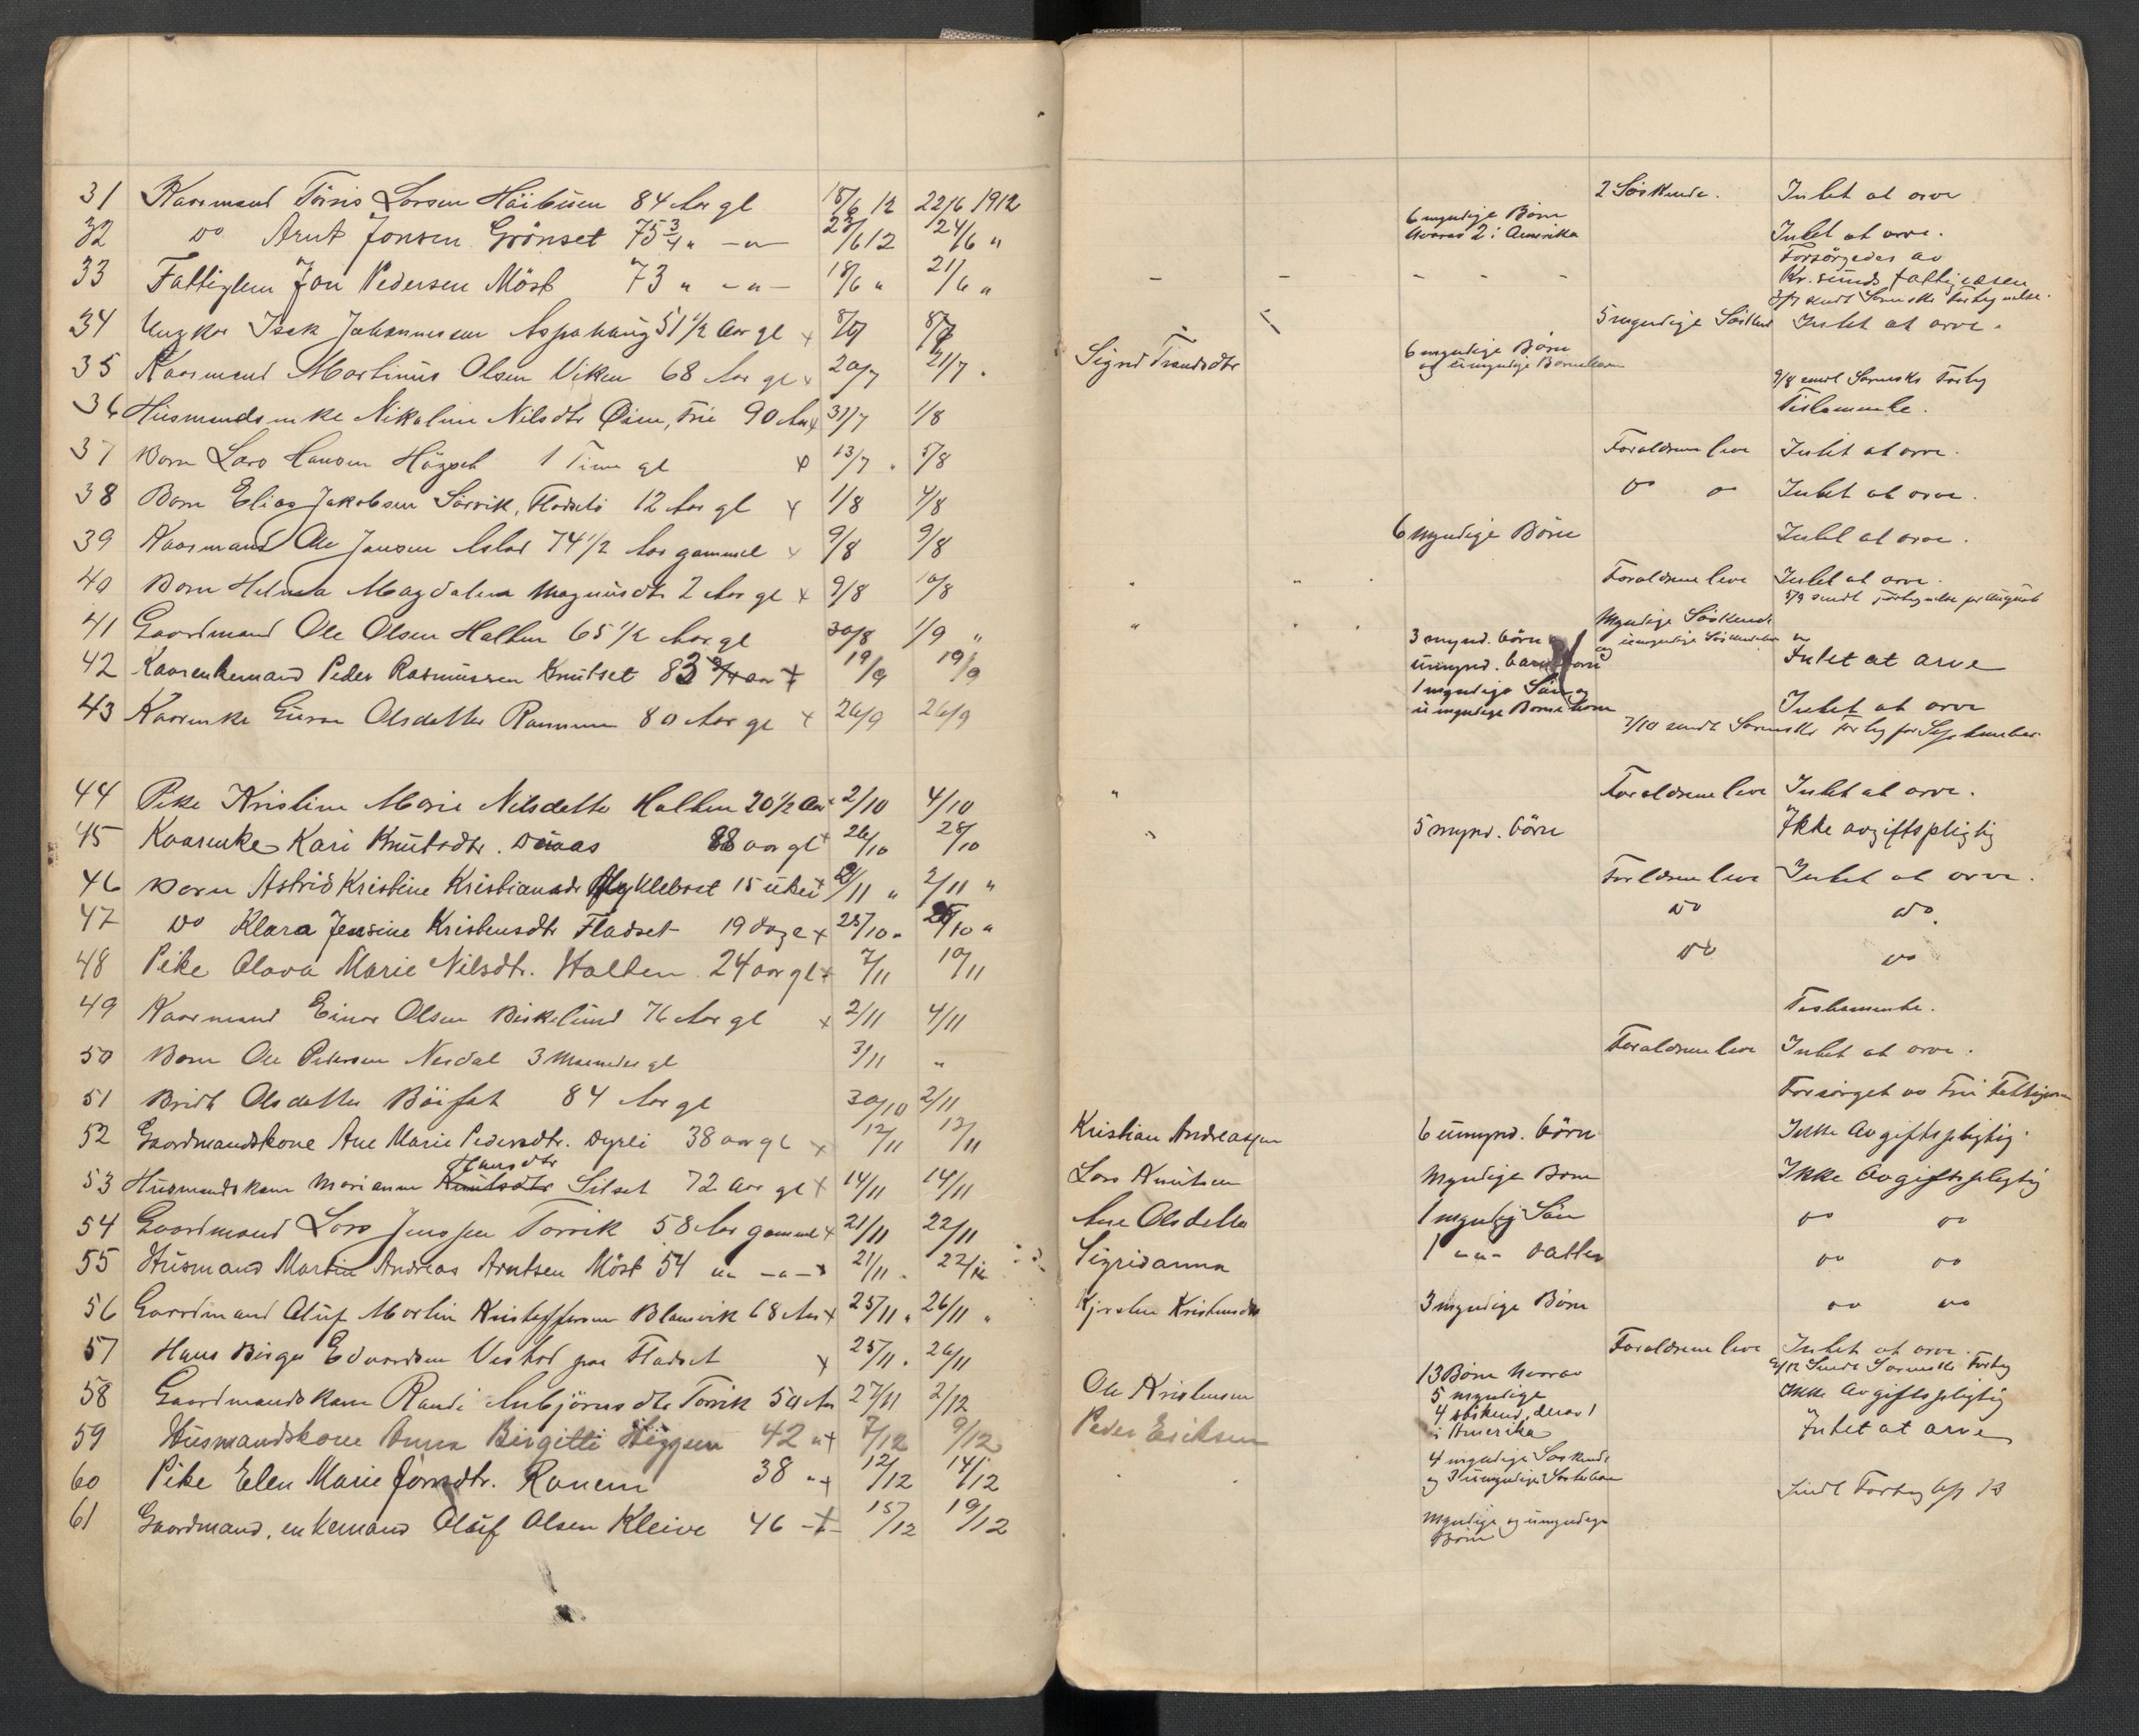 31 Kaarmand Larsen 84 Aar gl 18/6 12 22/6 1912 2 Söskende. Intet at arve
32 Do Arnt Jonsen Grönset 75 3/4 " -"- 23/6 12 24/6 " 6 myndige Börn hvorav 2 i Amerika Intet at arve.
33 Fattiglem Jon Pedersen Möst 73 " -"- 18/6 " 21/6 " - - - - - Forsörgedes av Kr.sunds fattigvæsen
3/7 sendt Sorenskr. Fortegnelse.
34 Ungkar Isak Johannessen Aspahaug 51 1/2 Aar gl x 8/7 5 myndige Söskend Intet at arve.
35 Kaarmand Martinus Olsen Viken 68 Aar gl x 20/7 21/7 . 6 myndige Börn og umyndige Börnebörn
9/8 sendt Sorenskr Forteg
36 Husmandsenke Nikoline Nilsdtr Øien, Frei 90 Aar x 31/7 1/8 Testamente.
37 Barn Lars Hansen 1 Time gl 13/7 . 5/8 Forældrene leve Intet at arve.
38 Barn Elias Jakobsen Sörvik, 12 Aar gl x 1/8 4/8 Do Do Intet at arve.
39 Kaarmand Ole Jansen 74 1/2 Aar gammel x 9/8 9/8 6 Myndige Börn Intet at arve.
40 Barn Helma Magdalena Magnusdtr 2 Aar gl x 9/8 10/8 " " . Forældrene leve Intet at arve.
5/9 sendt Fortegnelse for August
41 Gaardmand Ole Olsen Halten 65 1/2 Aar gl 30/8 1/9 " " . . Myndige Söskende og umyndige Söskendebörn "
42 Kaarenkemand Peder Rasmussen Knutset 83 aar x 19/9 19/9 3 mynd. börn umynd. Intet at arve
43 Kaarenke Guron Olsdatter 80 Aar gl x 26/9 26/9 1 myndige Sön og umyndige Börnebörn Intet at arve
7/10 sendt Sorenskr Forteg for September
44 Pike Kristine Marie Nilsdatter Halten 20 1/2 Aar 2/10 4/10 " Forældrene leve Intet at arve.
45 Kaarenke Kari Knutsdtr. 88 aar gl x 26/10 28/10 " 5 mynd. börn Ikke avgiftspligtig
46 Barn Astrid Kristine Kristiansdtr Myklebost 15 uker 2/11 " 2/11 " Forældrene leve Intet at arve.
47 Do Klara Jensine Kristensdtr Fladset 19 dage x 25/10 " 25/10 " Do Do.
48 Pike Olava Marie Nilsdtr. Halten 24 aar gl x 7/11 10/11 Do Do
49 Kaarmand Einar Olsen Birkelund 76 Aar gl x 2/11 4/11 Testamente.
50 Barn Ole Pedersen Nerdal 3 Maaneder gl 3/11 " Forældrene leve Intet at arve.
51 Bridt Olsdatter Böifot 84 Aar gl 30/10 2/11 Forsörget av Frei Fattigv
52 Gaardmandskone Ane Marie Pedersdtr. Dyrli 38 aar gl x 12/11 12/11 Kristian Andreassen 6 umynd. börn Ikke Avgiftspligtig
53 Husmandskone Marianne Knutsdtr Hansdtr Silset 72 Aar gl x 14/11 14/11 Lars Knutsen Myndige Börn Ikke Avgiftspligtig
54 Gaardmand Lars Jenssen Torvik 58 Aar gammel x 21/11 22/11 Ane Olsdatter 1 myndig Sön Do Do
55 Husmand Martin Andreas Arntsen Möst 54 "" -"- x 21/11 . 22/11 Sigridanna 1 -"- Datter Do Do
56 Gaardmand Oluf Martin Kristoffersen 68 Aar x 25/11 " 26/11 " Kjersten Kristensdtr 3 myndige Börn Do Do
57 Hans Birger Edvardsen Vestad paa Fladset x 25/11 . 26/11 Forældrene leve Intet at arve.
2/12 Sendt Sorenskr Forteg
58 Gaardmandskone Randi Anbjörnsdtr Torvik 50 Aar 27/11 2/12 Ole Kristensen 13 Börn hvorav 5 myndige Ikke avgiftspligtig
59 Husmandskone Anna Birgitte Higgem 42 " x 7/12 9/12 Peder Eriksen 4 söskend, derav 1 i Amerika Intet at arve
60 Pike Elen Marie Jörnsdtr. Ranem 38 " x 12/12 14/12 4 myndige Söskende og 3 umyndige
Sendt Forteg 6/1 13
61 Gaardmand, enkemand Oluf Olsen Kleive 46 -x- 15/12 19/12 Myndige og umyndige Börn